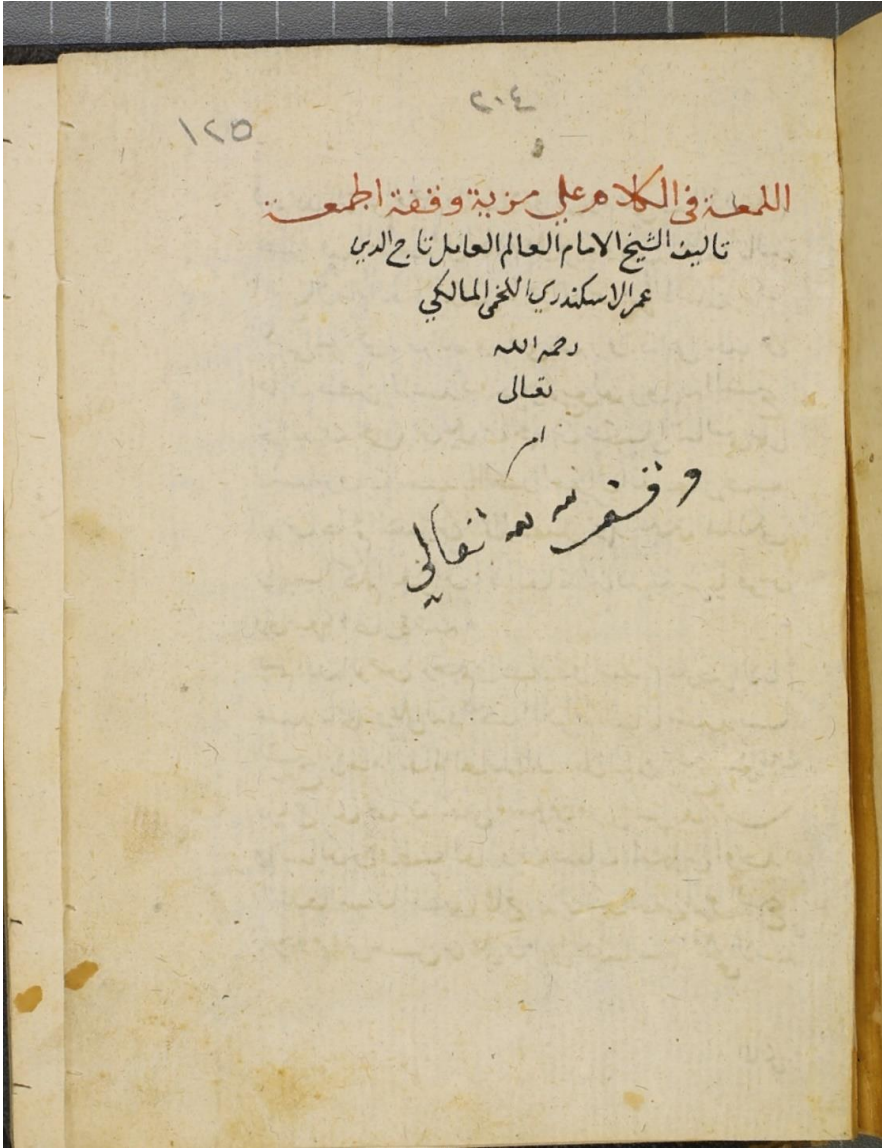 ٢٠٤
١٢٥
اللمعة فى الكلام علي مزية وقفة الجمعة
تاليف الشيخ الامام العالم العامل تاج الدين
عمر الاسكندري اللخمى المالكي
رحمه الله
تعالى
ام
وقف لله تعالي